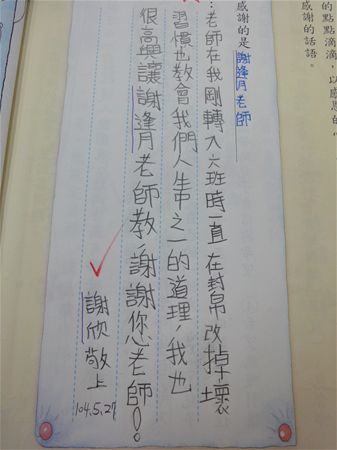 的點點滴滴，以感恩的心
感謝的話語。
感謝的是謝逢月老師
：老師在我剛轉入六班時一直在幫改掉壞
習慣也教會我們人生中之一的道理，我也
很高興讓謝逢月老師教，謝謝您老師！。
謝欣敬上
104.5.27